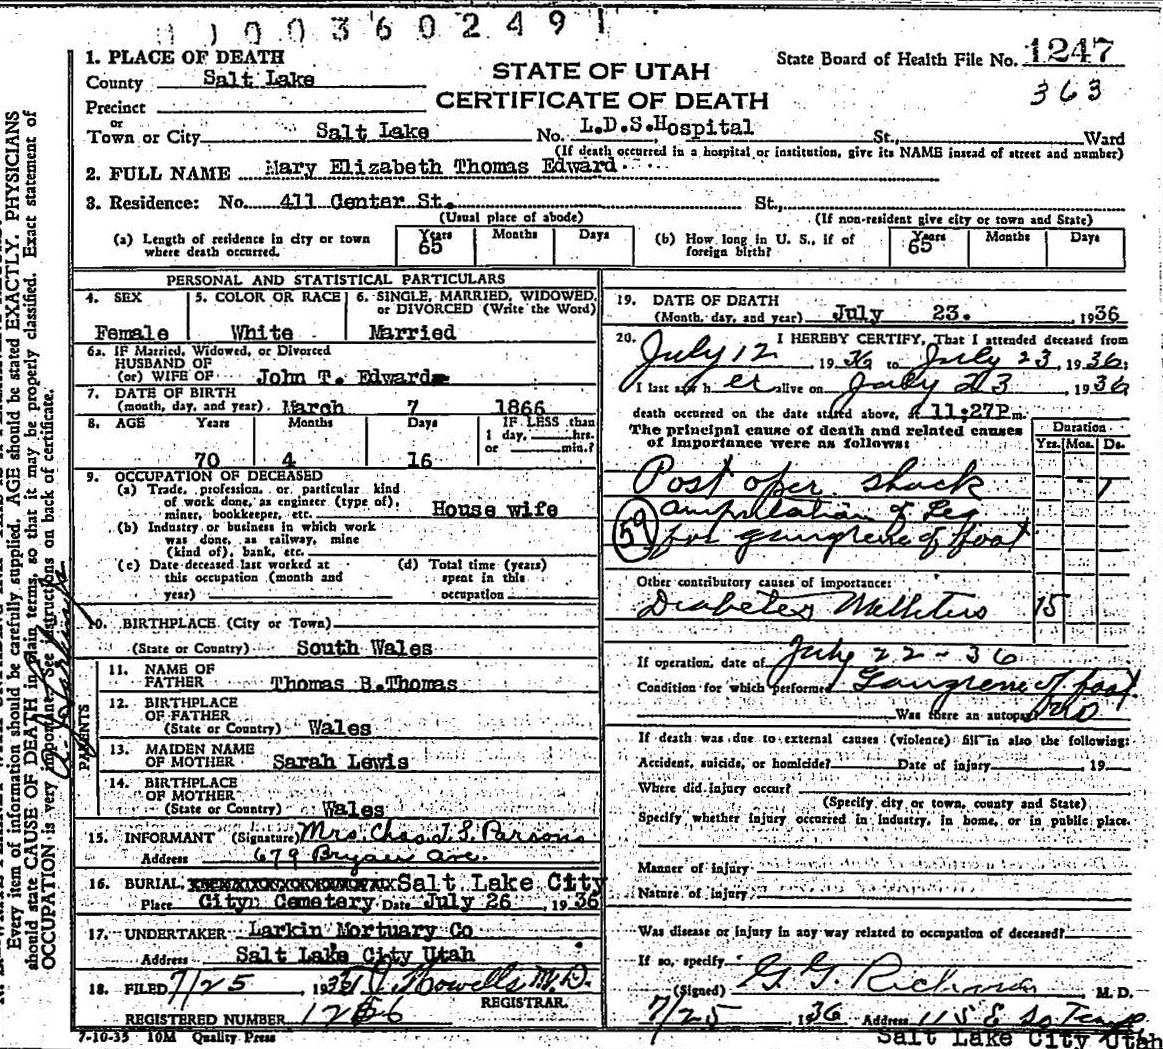 1 1 0 0 3 6 0 2 4 9 1
1. PLACE OF DEATH
County Salt Lake
Precinct
or
Town or City Salt Lake
STATE OF UTAH
CERTIFICATE OF DEATH
State Board of Health File No. 1247
363
No. L.D.S.Hospital St., Ward
(If death occurred in a hospital or institution, give its NAME instead of street and number)
2. FULL NAME Mary Elizabeth Thomas Edward
3. Residence: No. 411 Center St. St.,
(Usual place of abode) (If non-resident give city or town and State)
(a) Length of residence in city or town where death occurred. Years 65 Months Days
(b) How long in U. S., if of foreign birth? Years 65 Months Days
PERSONAL AND STATISTICAL PARTICULARS
4. SEX Female
5. COLOR OR RACE White
6. SINGLE, MARRIED, WIDOWED, or DIVORCED (Write the Word) Married
6a. IF Married, Widowed, or Divorced
HUSBAND OF
(or) WIFE OF John T. Edwards
7. DATE OF BIRTH
(month, day, and year) March 7 1866
8. AGE Years 70 Months 4 Days 16
IF LESS than 1 day, hrs. or min.?
9. OCCUPATION OF DECEASED
(a) Trade, profession, or particular kind
of work done, as engineer (type of),
miner, bookkeeper, etc. House wife
(b) Industry or business in which work
was done, as railway, mine
(kind of), bank, etc.
(c) Date deceased last worked at
this occupation (month and
year)
(d) Total time (years)
spent in this
occupation
10. BIRTHPLACE (City or Town)
(State or Country) South Wales
PARENTS
11. NAME OF
FATHER Thomas B.Thomas
12. BIRTHPLACE
OF FATHER
(State or Country) Wales
13. MAIDEN NAME
OF MOTHER Sarah Lewis
14. BIRTHPLACE
OF MOTHER
(State or Country) Wales
15. INFORMANT (Signature) Mrs. Chas. T. S. Parsons
Address 679 Bryan Ave.
16. BURIAL, Salt Lake City
Place City Cemetery Date July 26, 1936
17. UNDERTAKER Larkin Mortuary Co
Address Salt Lake City Utah
18. FILED 7/25, 1936 Howells M.D.
REGISTRAR.
REGISTERED NUMBER
7-10-35 10M Quality Press
19. DATE OF DEATH
(Month, day, and year) July 23. 1936
20. I HEREBY CERTIFY, That I attended deceased from
July 12, 1936 to July 23, 1936;
I last saw h er alive on July 23, 1936
death occurred on the date stated above, at 11:27P m.
The principal cause of death and related causes
of importance were as follows:
Duration
Yrs. Mos. Ds.
Post oper. shock 1
amputation of Leg
59 for gangrene of foot
Other contributory causes of importance:
Diabetes Mellitus 15
If operation, date of July 22-36
Condition for which performed Gangrene of foot
Was there an autopsy no
If death was due to external causes (violence) fill in also the following:
Accident, suicide, or homicide? Date of injury 19
Where did injury occur?
(Specify city or town, county and State)
Specify whether injury occurred in industry, in home, or in public place.
Manner of injury
Nature of injury
Was disease or injury in any way related to occupation of deceased?
If so, specify
(Signed) G. G. Richards M. D.
7/25 1936 Address 115 E So. Temple
Salt Lake City Utah
Every item of information should be carefully supplied. AGE should be stated EXACTLY. PHYSICIANS
should state CAUSE OF DEATH in plain terms, so that it may be properly classified. Exact statement of
OCCUPATION is very important. See instructions on back of certificate.